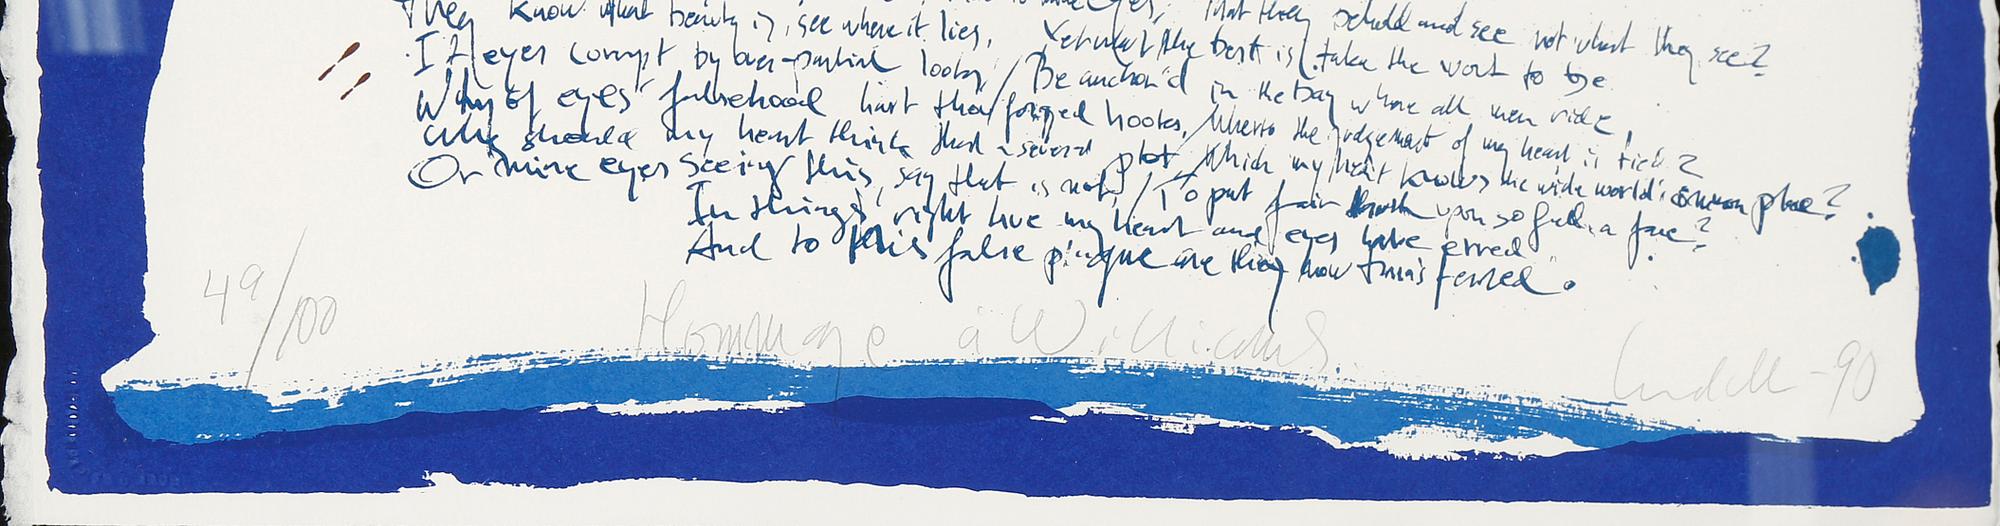 eyes, that they behold and see not what they see?
They know what beauty is, see where it lies, Yet what the best is / take the worst to be.
If eyes corrupt by over-partial looks / Be anchor'd in the bay where all men ride,
Why of eyes' falsehood hast thou forged hooks, Whereto the judgement of my heart is tied?
Why should my heart think that a several plot / Which my heart knows the wide world's common place?
Or mine eyes seeing this, say that is not, / To put fair truth upon so foul a face?
In things right true my heart and eyes have erred
And to this false plague are they now transferred.
49/100 Hommage à William S. -90